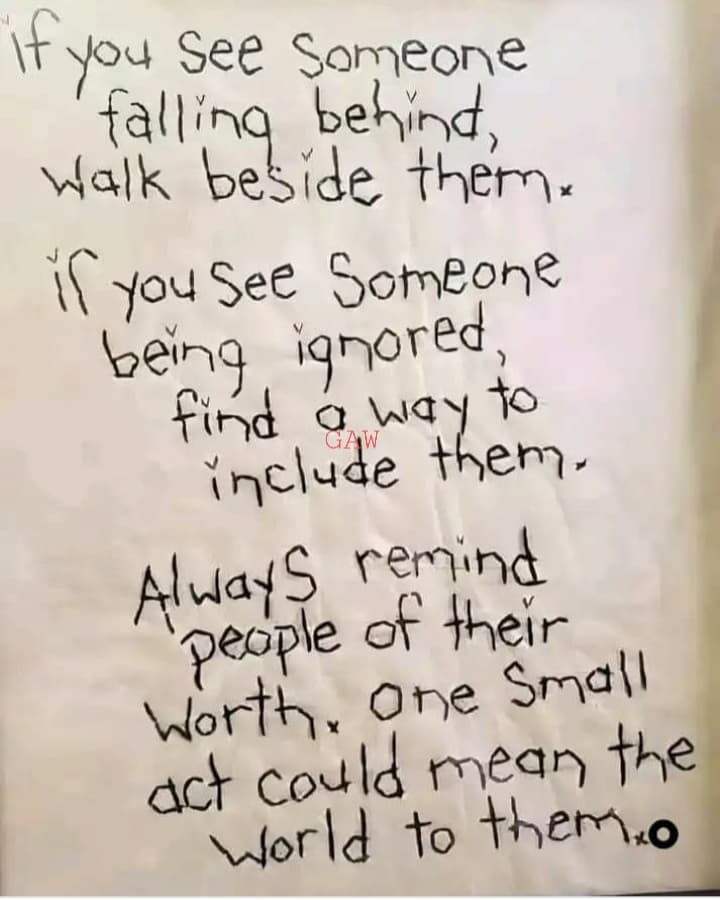 if you see someone
falling behind,
walk beside them.
if you see someone
being ignored,
find a way to
GAW
include them.
Always remind
people of their
worth. one small
act could mean the
world to them.